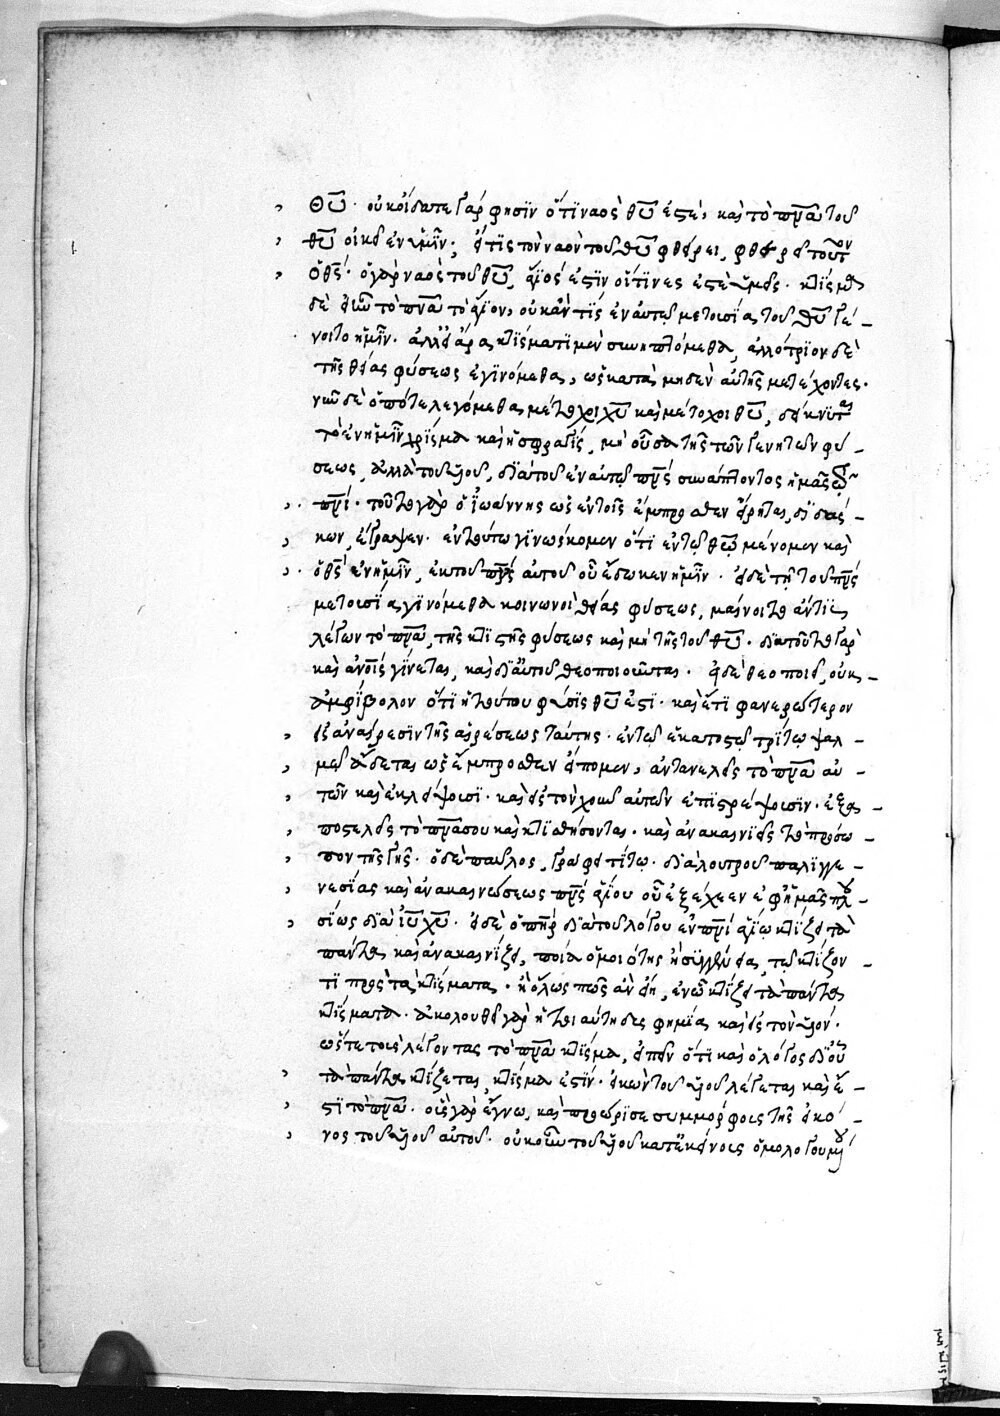 θῦ· οὐκ οἴδατε γάρ φησιν ὅτι ναὸς θῦ ἐστέ, καὶ τὸ πνᾶ τοῦ
θῦ οἰκεῖ ἐν ὑμῖν; εἴ τις τὸν ναὸν τοῦ θῦ φθείρει, φθερεῖ τοῦτον
ὁ θς· ὁ γὰρ ναὸς τοῦ θῦ, ἅγιός ἐστιν οἵτινές ἐστε ὑμεῖς· κτίσμα
δὲ εἰ ἦν τὸ πνᾶ τὸ ἅγιον, οὐκ ἄν τις ἐν αὐτῷ μετουσία τοῦ θῦ γέ-
νοιτο ἡμῖν· ἀλλ' εἰ ἄρα κτίσματι μὲν συνηπτόμεθα, ἀλλότριοι δὲ
τῆς θείας φύσεως ἐγινόμεθα, ὡς κατὰ μηδὲν αὐτῆς μετέχοντες·
νῦν δὲ ὁπότε λεγόμεθα μέτοχοι χῦ καὶ μέτοχοι θῦ, δείκνυται
τὸ ἐν ἡμῖν χρίσμα καὶ ἡ σφραγίς, μὴ οὖσα τῆς τῶν γενητῶν φύ-
σεως, ἀλλὰ τοῦ υἱοῦ, διὰ τοῦ ἐν αὐτῷ πνς συνάπτοντος ἡμᾶς τῷ
πρί· τοῦτο γὰρ ὁ ἰωάννης ὡς ἐν τοῖς ἔμπροσθεν εἴρηται, διδάσ-
κων, ἔγραψεν· ἐν τούτῳ γινώσκομεν ὅτι ἐν τῷ θῷ μένομεν καὶ
ὁ θς ἐν ἡμῖν, ἐκ τοῦ πνς αὐτοῦ οὗ ἔδωκεν ἡμῖν· εἰ δὲ τῇ τοῦ πνς
μετουσίᾳ γινόμεθα κοινωνοὶ θείας φύσεως, μαίνοιτο ἄν τις
λέγων τὸ πνᾶ, τῆς κτιστῆς φύσεως καὶ μὴ τῆς τοῦ θῦ· διὰ τοῦτο γὰρ
καὶ ἐν οἷς γίνεται, καὶ δι' αὐτοῦ θεοποιοῦνται· εἰ δὲ θεοποιεῖ, οὐκ
ἀμφίβολον ὅτι ἡ τούτου φύσις θῦ ἐστι· καὶ ἔτι φανερώτερον
εἰς ἀναίρεσιν τῆς αἱρέσεως ταύτης· ἐν τῷ ἑκατοστῷ τρίτῳ ψαλ-
μῷ ᾄδεται ὡς ἔμπροσθεν εἴπομεν, ἀντανελεῖς τὸ πνᾶ αὐ-
τῶν καὶ ἐκλείψουσι· καὶ εἰς τὸν χοῦν αὐτῶν ἐπιστρέψουσιν· ἐξα-
ποστελεῖς τὸ πνᾶ σου καὶ κτισθήσονται· καὶ ἀνακαινιεῖς τὸ πρόσω-
πον τῆς γῆς· ὁ δὲ παῦλος, γράφει τίτῳ· διὰ λουτροῦ παλιγγε-
νεσίας καὶ ἀνακαινώσεως πνς ἁγίου οὗ ἐξέχεεν ἐφ' ἡμᾶς πλου-
σίως διὰ ἰῦ χῦ· εἰ δὲ ὁ πὴρ διὰ τοῦ λόγου ἐν πνί ἁγίῳ κτίζει τὰ
πάντα καὶ ἀνακαινίζει, ποία ὁμοιότης ἢ συγγένεια, τῷ κτίζον-
τι πρὸς τὰ κτίσματα· ἢ ὅλως πῶς ἂν εἴη, ἐν ᾧ κτίζει τὰ πάντα
κτίσματα· ἀκολουθεῖ γὰρ ἡ τοιαύτη δυσφημία καὶ εἰς τὸν υἱόν·
ὥστε τοὺς λέγοντας τὸ πνᾶ κτίσμα, εἰπεῖν ὅτι καὶ ὁ λόγος δι' οὗ
τὰ πάντα κτίζεται, κτίσμα ἐστίν· εἰκὼν τοῦ υἱοῦ λέγεται καὶ ἔ-
στι τὸ πνᾶ· οὓς γὰρ ἔγνω, καὶ προώρισε συμμόρφους τῆς εἰκό-
νος τοῦ υἱοῦ αὐτοῦ· οὐκοῦν τοῦ υἱοῦ κατ' ἐκείνους ὁμολογουμέ